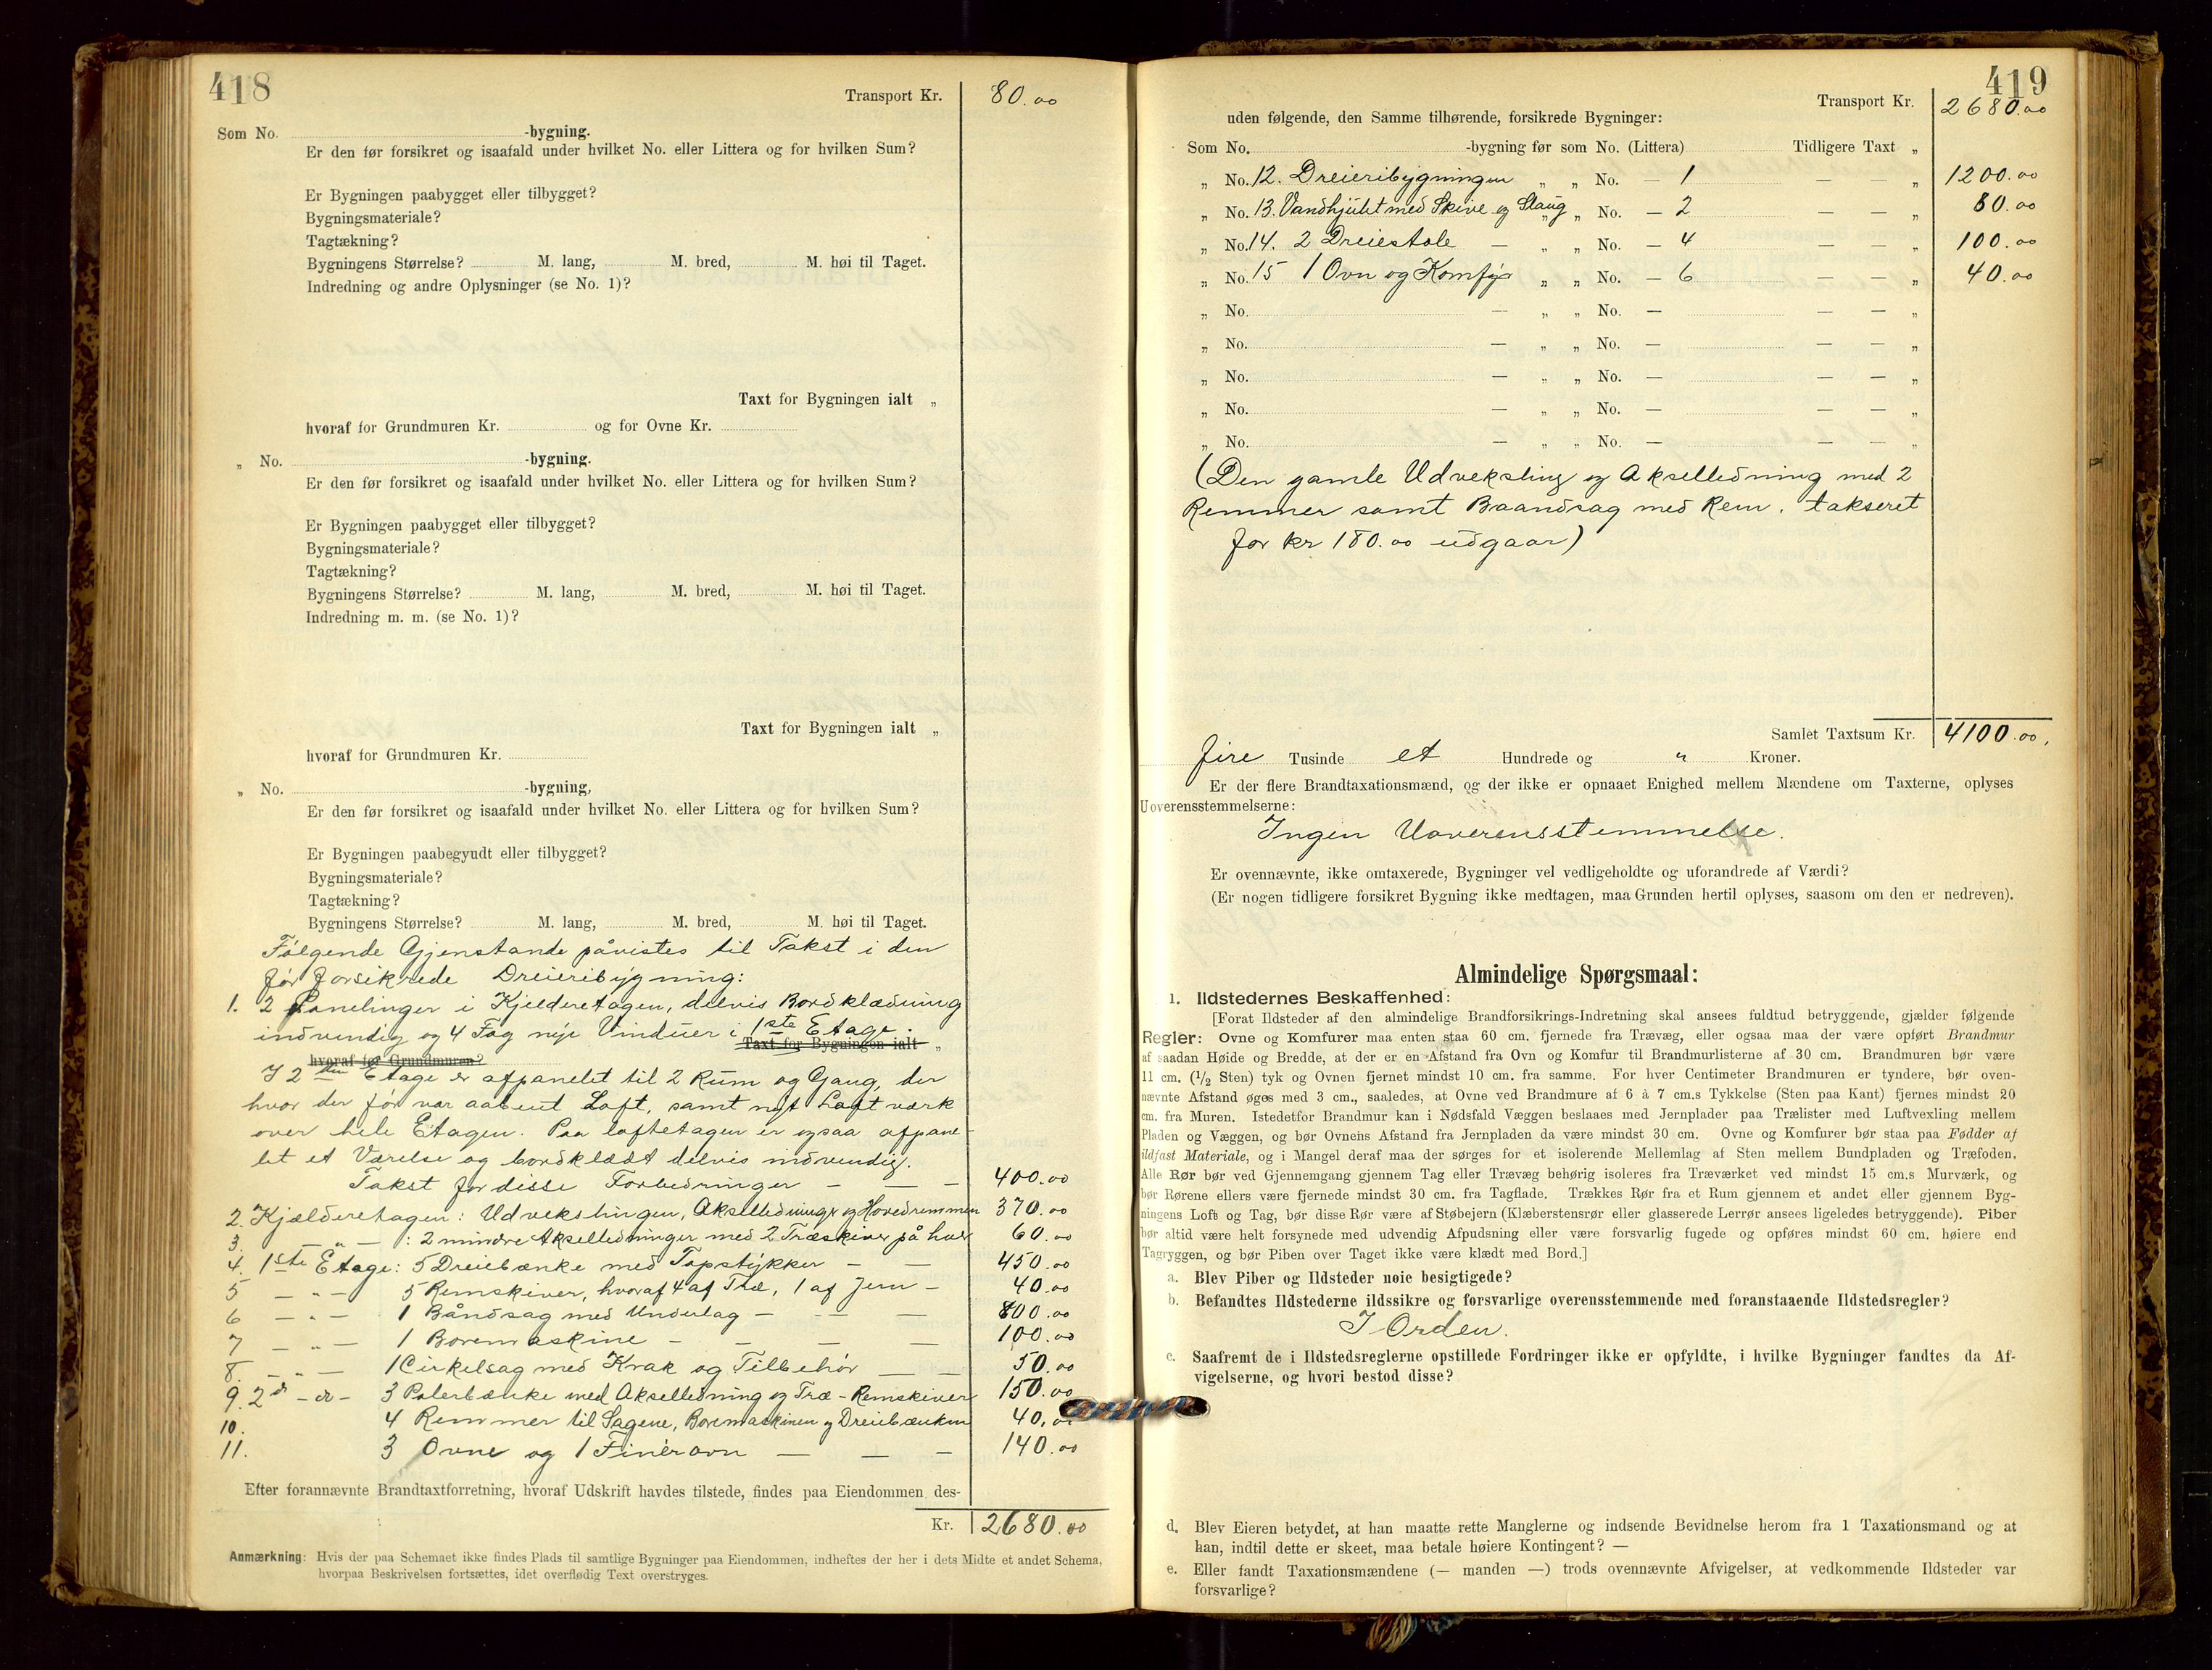 418
Transport Kr. 80.00
Som No. -bygning.
Er den før forsikret og isaafald under hvilket No. eller Littera og for hvilken Sum?
Er Bygningen paabygget eller tilbygget?
Bygningsmateriale?
Tagtækning?
Bygningens Størrelse? M. lang, M. bred, M. høi til Taget.
Indredning og andre Oplysninger (se No. 1)?
Taxt for Bygningen ialt „
hvoraf for Grundmuren Kr. og for Ovne Kr.
„ No. -bygning.
Er den før forsikret og isaafald under hvilket No. eller Littera og for hvilken Sum?
Er Bygningen paabygget eller tilbygget?
Bygningsmateriale?
Tagtækning?
Bygningens Størrelse? M. lang, M. bred, M. høi til Taget.
Indredning m. m. (se No. 1)?
Taxt for Bygningen ialt „
hvoraf for Grundmuren Kr.
„ No. -bygning,
Er den før forsikret og isaafald under hvilket No. eller Littera og for hvilken Sum?
Er Bygningen paabegyndt eller tilbygget?
Bygningsmateriale?
Tagtækning?
Bygningens Størrelse? M. lang, M. bred, M. høi til Taget.
Følgende Gjenstande påvistes til Takst i den
før forsikrede Dreieribygning:
1. 2 Panelinger i Kjelderetagen, delvis Bordklædning
indvendig og 4 Fag nye Vinduer i 1ste Etage.
Taxt for Bygningen ialt „
hvoraf for Grundmuren?
I 2den Etage er afpanelet til 2 Rum og Gang, der
hvor der før var aabent Loft, samt nyt Loftværk
over hele Etagen. Paa loftetagen er ogsaa afpane-
let et Værelse og bordklædt delvis indvendig.
Takst for disse Forbedringer - — — 400.00
2. Kjælderetagen: Udvekslingen, Akselledninge og Hovedremmen 370.00
3. — „ — : 2 mindre Akselledninger med 2 Træskiver på hver 60.00
4. 1ste Etage: 5 Dreiebænke med Topstykker — — 450.00
5 — „ — 5 Remskiver, hvoraf 4 af Træ, 1 af Jern — 40.00
6 — „ — 1 Båndsag med Underlag — — — 800.00
7 — „ — 1 Boremaskine — — — — 100.00
8. — „ — 1 Cirkelsag med Krak og Tilbehör — — 50.00
9. 2d - do - 3 Polerbænke med Akselledning og Træ-Remskiver 150.00
10. 4 Remmer til Sagene, Boremaskinen og Dreiebænken 40.00
11. 3 Ovne og 1 Finérovn — — — 140.00
Efter forannævnte Brandtaxtforretning, hvoraf Udskrift havdes tilstede, findes paa Eiendommen des-
Kr. 2680.00
Anmærkning: Hvis der paa Schemaet ikke findes Plads til samtlige Bygninger paa Eiendommen, indheftes der her i dets Midte et andet Schema,
hvorpaa Beskrivelsen fortsættes, idet overflødig Text overstryges.
419
Transport Kr. 2680.00
uden følgende, den Samme tilhørende, forsikrede Bygninger:
Som No. -bygning før som No. (Littera) Tidligere Taxt „
„ No. 12. Dreieribygningen „ „ No. — 1 — — „ 1200.00
„ No. 13. Vandhjulet med Skive og Slaug „ „ No. — 2 — — „ 80.00
„ No. 14. 2 Dreiestole — „ „ No. — 4 — — „ 100.00
„ No. 15 1 Ovn og Komfyr „ „ No. — 6 — — „ 40.00
„ No. — „ „ No. — — — „
„ No. — „ „ No. — — — „
„ No. — „ „ No. — — — „
„ No. — „ „ No. — — — „
„ No. — „ „ No. — — — „
(Den gamle Udveksling og Akselledning med 2
Remmer samt Baandsag med Rem, takseret
for kr 180.00 udgaar)
Samlet Taxtsum Kr. 4100.00.
fire Tusinde et Hundrede og „ Kroner.
Er der flere Brandtaxationsmænd, og der ikke er opnaaet Enighed mellem Mændene om Taxterne, oplyses
Uoverensstemmelserne:
Ingen Uoverensstemmelse.
Er ovennævnte, ikke omtaxerede, Bygninger vel vedligeholdte og uforandrede af Værdi?
(Er nogen tidligere forsikret Bygning ikke medtagen, maa Grunden hertil oplyses, saasom om den er nedreven).
Almindelige Spørgsmaal:
1. Ildstedernes Beskaffenhed:
[Forat Ildsteder af den almindelige Brandforsikrings-Indretning skal ansees fuldtud betryggende, gjælder følgende
Regler: Ovne og Komfurer maa enten staa 60 cm. fjernede fra Trævæg, eller ogsaa maa der være opført Brandmur
af saadan Høide og Bredde, at der er en Afstand fra Ovn og Komfur til Brandmurlisterne af 30 cm. Brandmuren bør være
11 cm. (1/2 Sten) tyk og Ovnen fjernet mindst 10 cm. fra samme. For hver Centimeter Brandmuren er tyndere, bør oven-
nævnte Afstand øges med 3 cm., saaledes, at Ovne ved Brandmure af 6 à 7 cm.s Tykkelse (Sten paa Kant) fjernes mindst 20
cm. fra Muren. Istedetfor Brandmur kan i Nødsfald Væggen beslaaes med Jernplader paa Trælister med Luftvexling mellem
Pladen og Væggen, og bør Ovnens Afstand fra Jernpladen da være mindst 30 cm. Ovne og Komfurer bør staa paa Fødder af
ildfast Materiale, og i Mangel deraf maa der sørges for et isolerende Mellemlag af Sten mellem Bundpladen og Træfoden.
Alle Rør bør ved Gjennemgang gjennem Tag eller Trævæg behørig isoleres fra Træværket ved mindst 15 cm.s Murværk, og
bør Rørene ellers være fjernede mindst 30 cm. fra Tagflade. Trækkes Rør fra et Rum gjennem et andet eller gjennem Byg-
ningens Loft og Tag, bør disse Rør være af Støbejern (Klæberstensrør eller glasserede Lerrør ansees ligeledes betryggende). Piber
bør altid være helt forsynede med udvendig Afpudsning eller være forsvarlig fugede og opføres mindst 60 cm. høiere end
Tagryggen, og bør Piben over Taget ikke være klædt med Bord.]
a. Blev Piber og Ildsteder nøie besigtigede?
b. Befandtes Ildstederne ildssikre og forsvarlige overensstemmende med foranstaaende Ildstedsregler?
I Orden.
c. Saafremt de i Ildstedsreglerne opstillede Fordringer ikke er opfyldte, i hvilke Bygninger fandtes da Af-
vigelserne, og hvori bestod disse?
d. Blev Eieren betydet, at han maatte rette Manglerne og indsende Bevidnelse herom fra 1 Taxationsmand og at
han, indtil dette er skeet, maa betale høiere Kontingent? —
e. Eller fandt Taxationsmændene (— manden —) trods ovennævnte Afvigelser, at vedkommende Ildsteder var
forsvarlige?